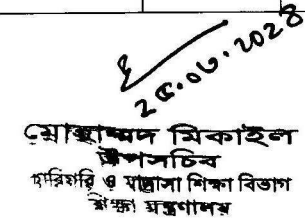 ২৫.০৬.২০২৪
মোহাম্মদ মিকাইল
উপসচিব
কারিগরি ও মাদ্রাসা শিক্ষা বিভাগ
শিক্ষা মন্ত্রণালয়